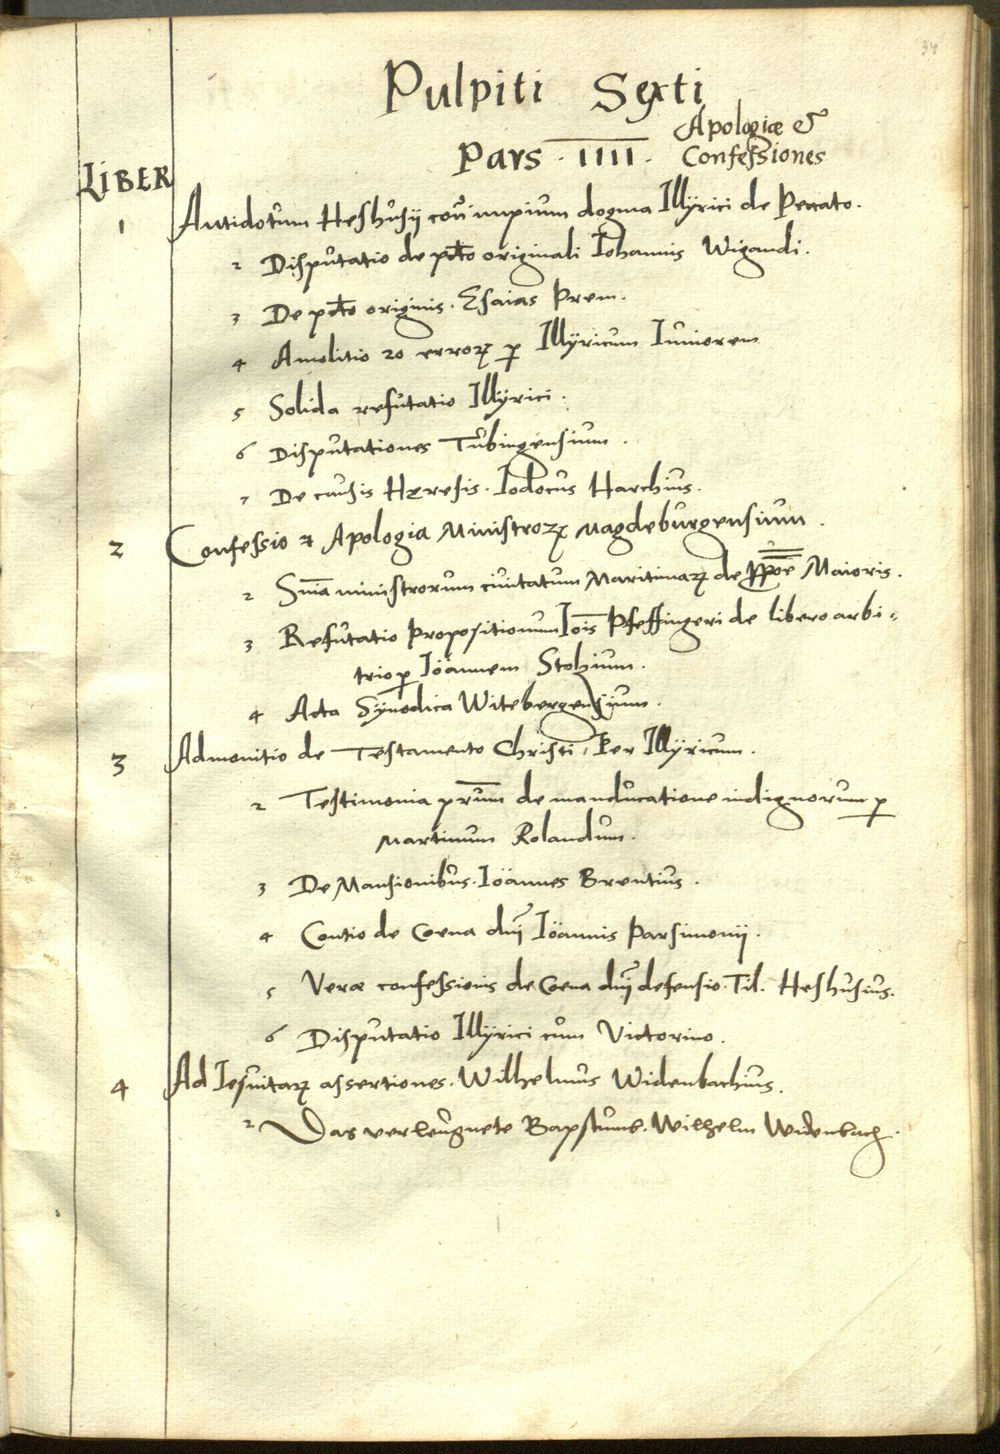 34
Pulpiti Sexti
Pars · IIII · Apologiæ &
Confessiones
LIBER
1 Antidotum Heshusij cont impium dogma Illÿrici de Peccato.
2 Disputatio de pcto originali Iohannis Wigandi.
3 De pcto originis. Esaias Prem.
4 Amolitio 20 erroꝝ ꝑ Illÿricum Iuniorem
5 Solida refutatio Illÿrici.
6 Disputationes Tubingensium.
7 De causis Hæresis. Iodocus Harchius.
2 Confessio & Apologia Ministroꝝ Magdeburgensium.
2 Snīa ministrorum ciuitatum Maritimaꝝ de Maioris.
3 Refutatio Propositionum Iois Pfeffingeri de libero arbi-
trio ꝑ Iöannem Stolzium.
4 Acta Sÿnodica Witebergensium.
3 Admonitio de Testamento Christi, Per Illÿricum.
2 Testimonia prum de manducatione indignorum ꝑ
Martinum Rolandum.
3 De Mansionibus. Iöannes Brentius.
4 Contio de Coena dnj Iöannis Parsimonij.
5 Veræ confessionis de Coena dnj defensio. Til. Heshusius.
6 Disputatio Illÿrici cum Victorino.
4 Ad Iesuitaꝝ assertiones. Wilhelmus Widenbachius.
2 Das verleugnete Bapstumb. Wilhelm Widenbach.